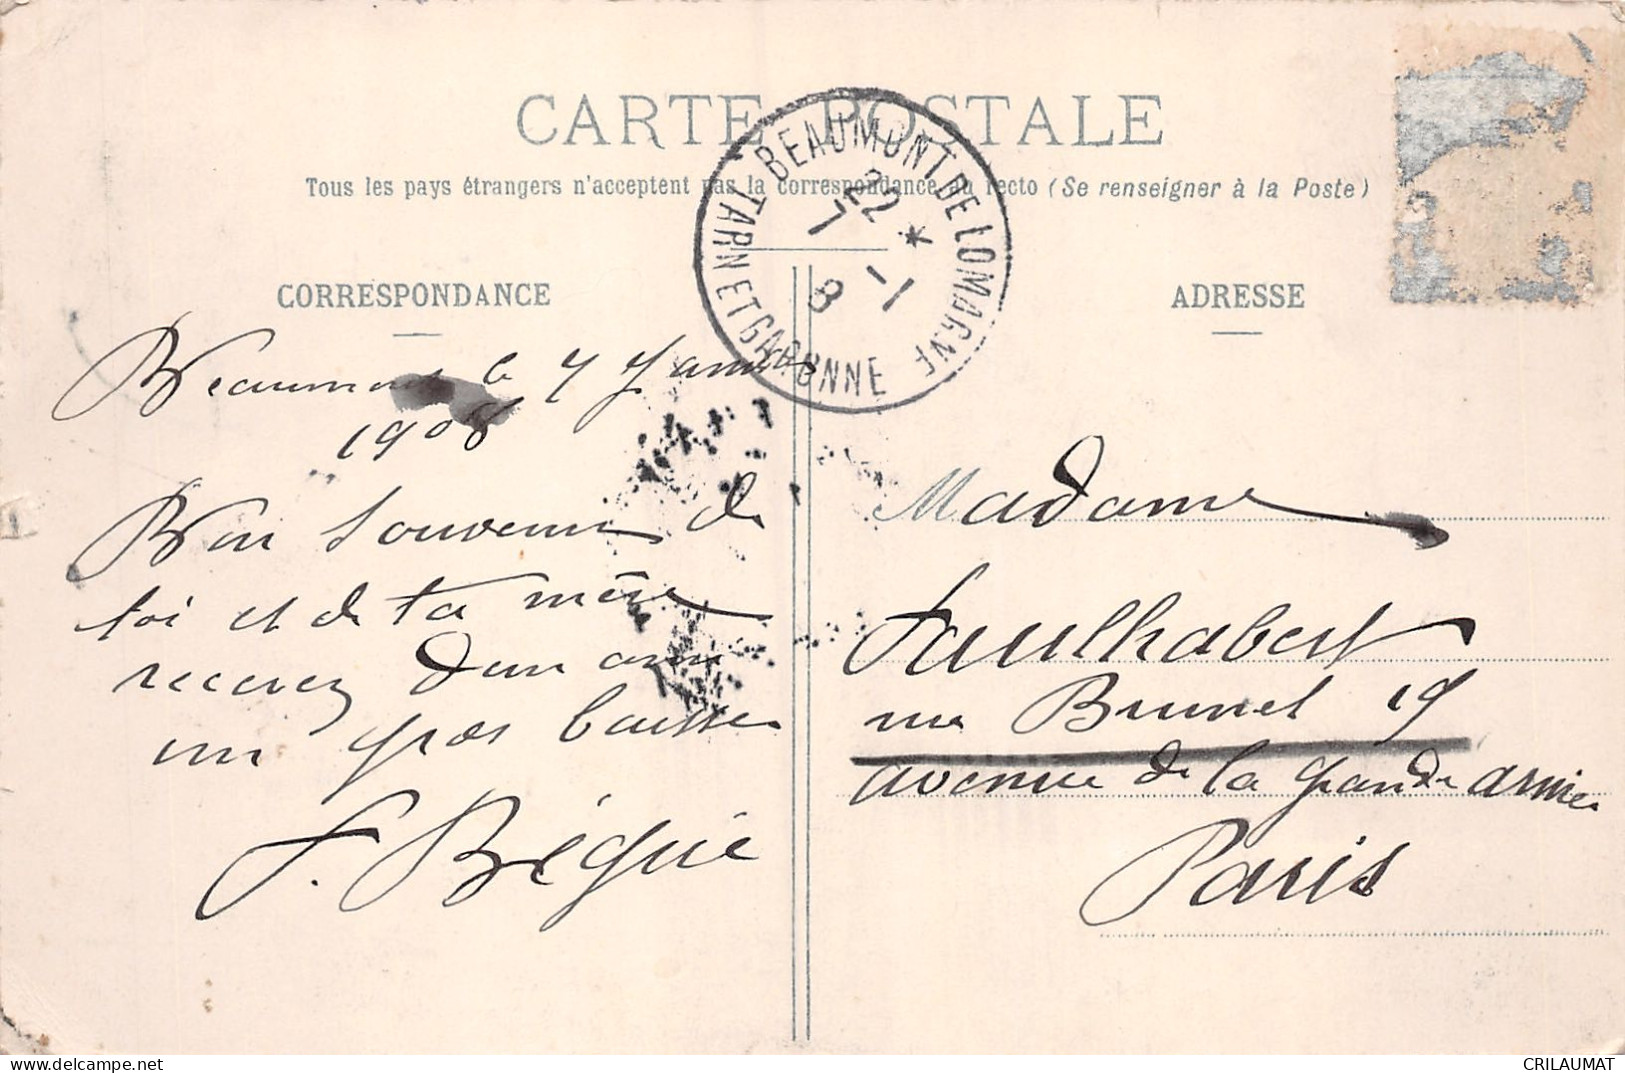 CARTE POSTALE
Tous les pays étrangers n'acceptent pas la correspondance au recto (Se renseigner à la Poste)
BEAUMONT DE LOMAGNE
22
7 *
-1
8
TARN ET GARONNE
CORRESPONDANCE
ADRESSE
Beaumont le 7 Janvier
1908
Bon souvenir de
toi et de ta mère
recevez d'un ami
un gros baiser
F. Béguié
Madame
Faulhabert
rue Brunel 19
avenue de la grande armée
Paris
delcampe.net
CRILAUMAT